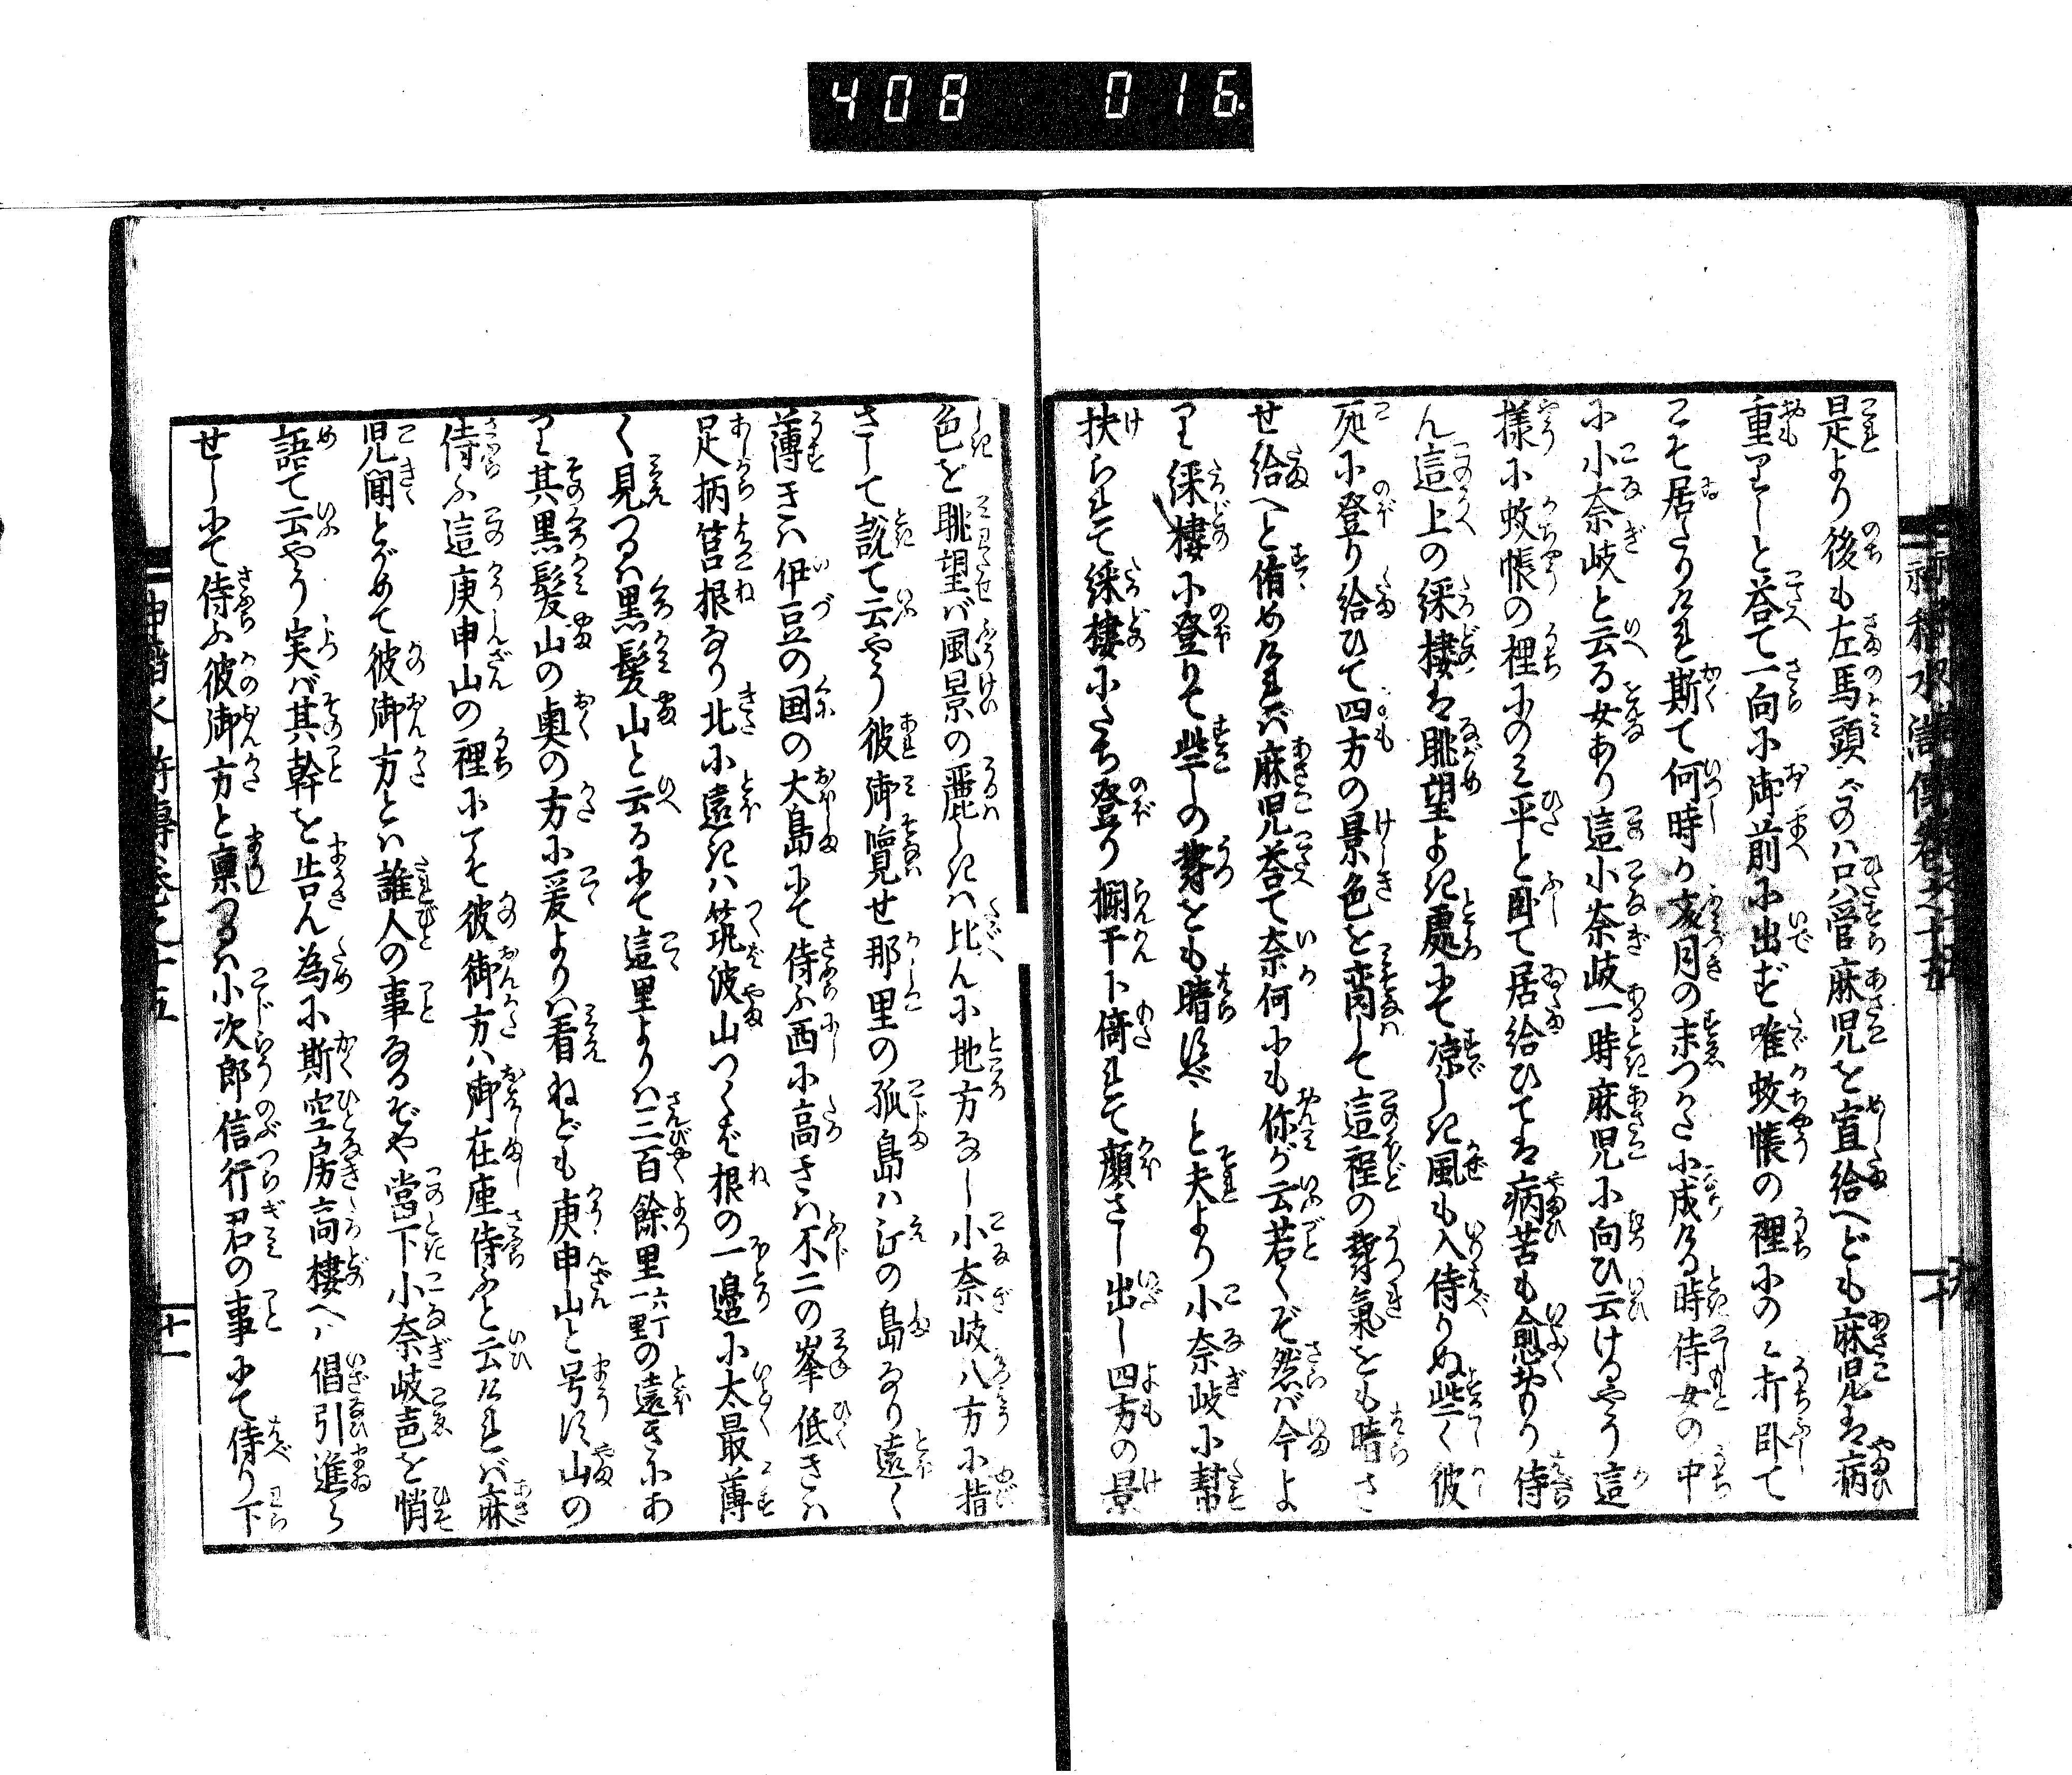 408 016
是より後も左馬頭どのハ只管麻児を宣給へども麻児は病
重りしと答て一向に御前に出ず唯蚊帳の裡にのミ打臥て
こそ居たりけれ斯て何時か亥月の末つかたに成ける時侍女の中
に小奈岐と云る女あり這小奈岐一時麻児に向ひ云けるやう這
様に蚊帳の裡にのミ平と臥て居給ひては病苦も愈やり侍
ん這上の綵楼は眺望よき處にて凉しき風も入侍りぬ些く彼
処に登り給ひて四方の景色を臠して這程の欝氣をも晴さ
せ給へと侑めければ麻児答て奈何にも你が云若くぞ然ば今よ
り綵楼に登りて些しの欝をも晴さばと夫より小奈岐に幇
扶られて綵楼にたち登り欄干ト倚れて顔さし出し四方の景
色を眺望ば風景の麗しきハ比ん小地方なし小奈岐八方に指
さして説て云やう彼御覽せ那里の孤島ハ江の島なり遠く
薄きハ伊豆の国の大島にて侍ふ西に高きハ不二の峯低きハ
足柄筥根なり北に遠きハ筑波山つくば根の一邉に太最薄
く見つるハ黒髪山と云るにて這里よりハ三百餘里六丁一里の遠きにあ
り其黒髪山の奥の方に爰よりハ看ねども庚申山と号き山の
侍ふ這庚申山の裡にてそ彼御方ハ御在座侍ふと云ければ麻
児聞とがめて彼御方とハ誰人の事なるぞや當下小奈岐声を悄
語て云やう実ば其幹を告ん為に斯空房高楼へハ倡引進ら
せしにて侍ふ彼御方と禀つるハ小次郎信行君の事にて侍り下
水滸傳巻之十五
十一